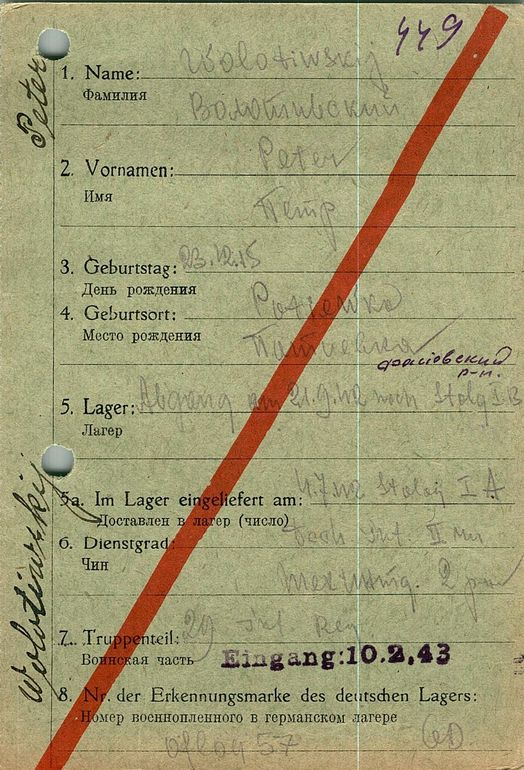 449
1. Name: Wolotiwskij
Фамилия Волотивский
2. Vornamen: Peter
Имя Петр
3. Geburtstag: 23.12.15
День рождения
4. Geburtsort: Potiewka
Место рождения Потиевка
р-н.
5. Lager: Abgang am 21.9.42 nach Stalg I B
Лагер
5a. Im Lager eingeliefert am: 4.7.42 Stalag I A
Доставлен в лагер (число)
6. Dienstgrad: Tech Int. II
Чин Тех.Инт. 2
7. Truppenteil: 29 Inf Reg
Воинская часть Eingang:10.2.43
8. Nr. der Erkennungsmarke des deutschen Lagers:
Номер военнопленного в германском лагере
oflag 57
Wolotiwskij Peter